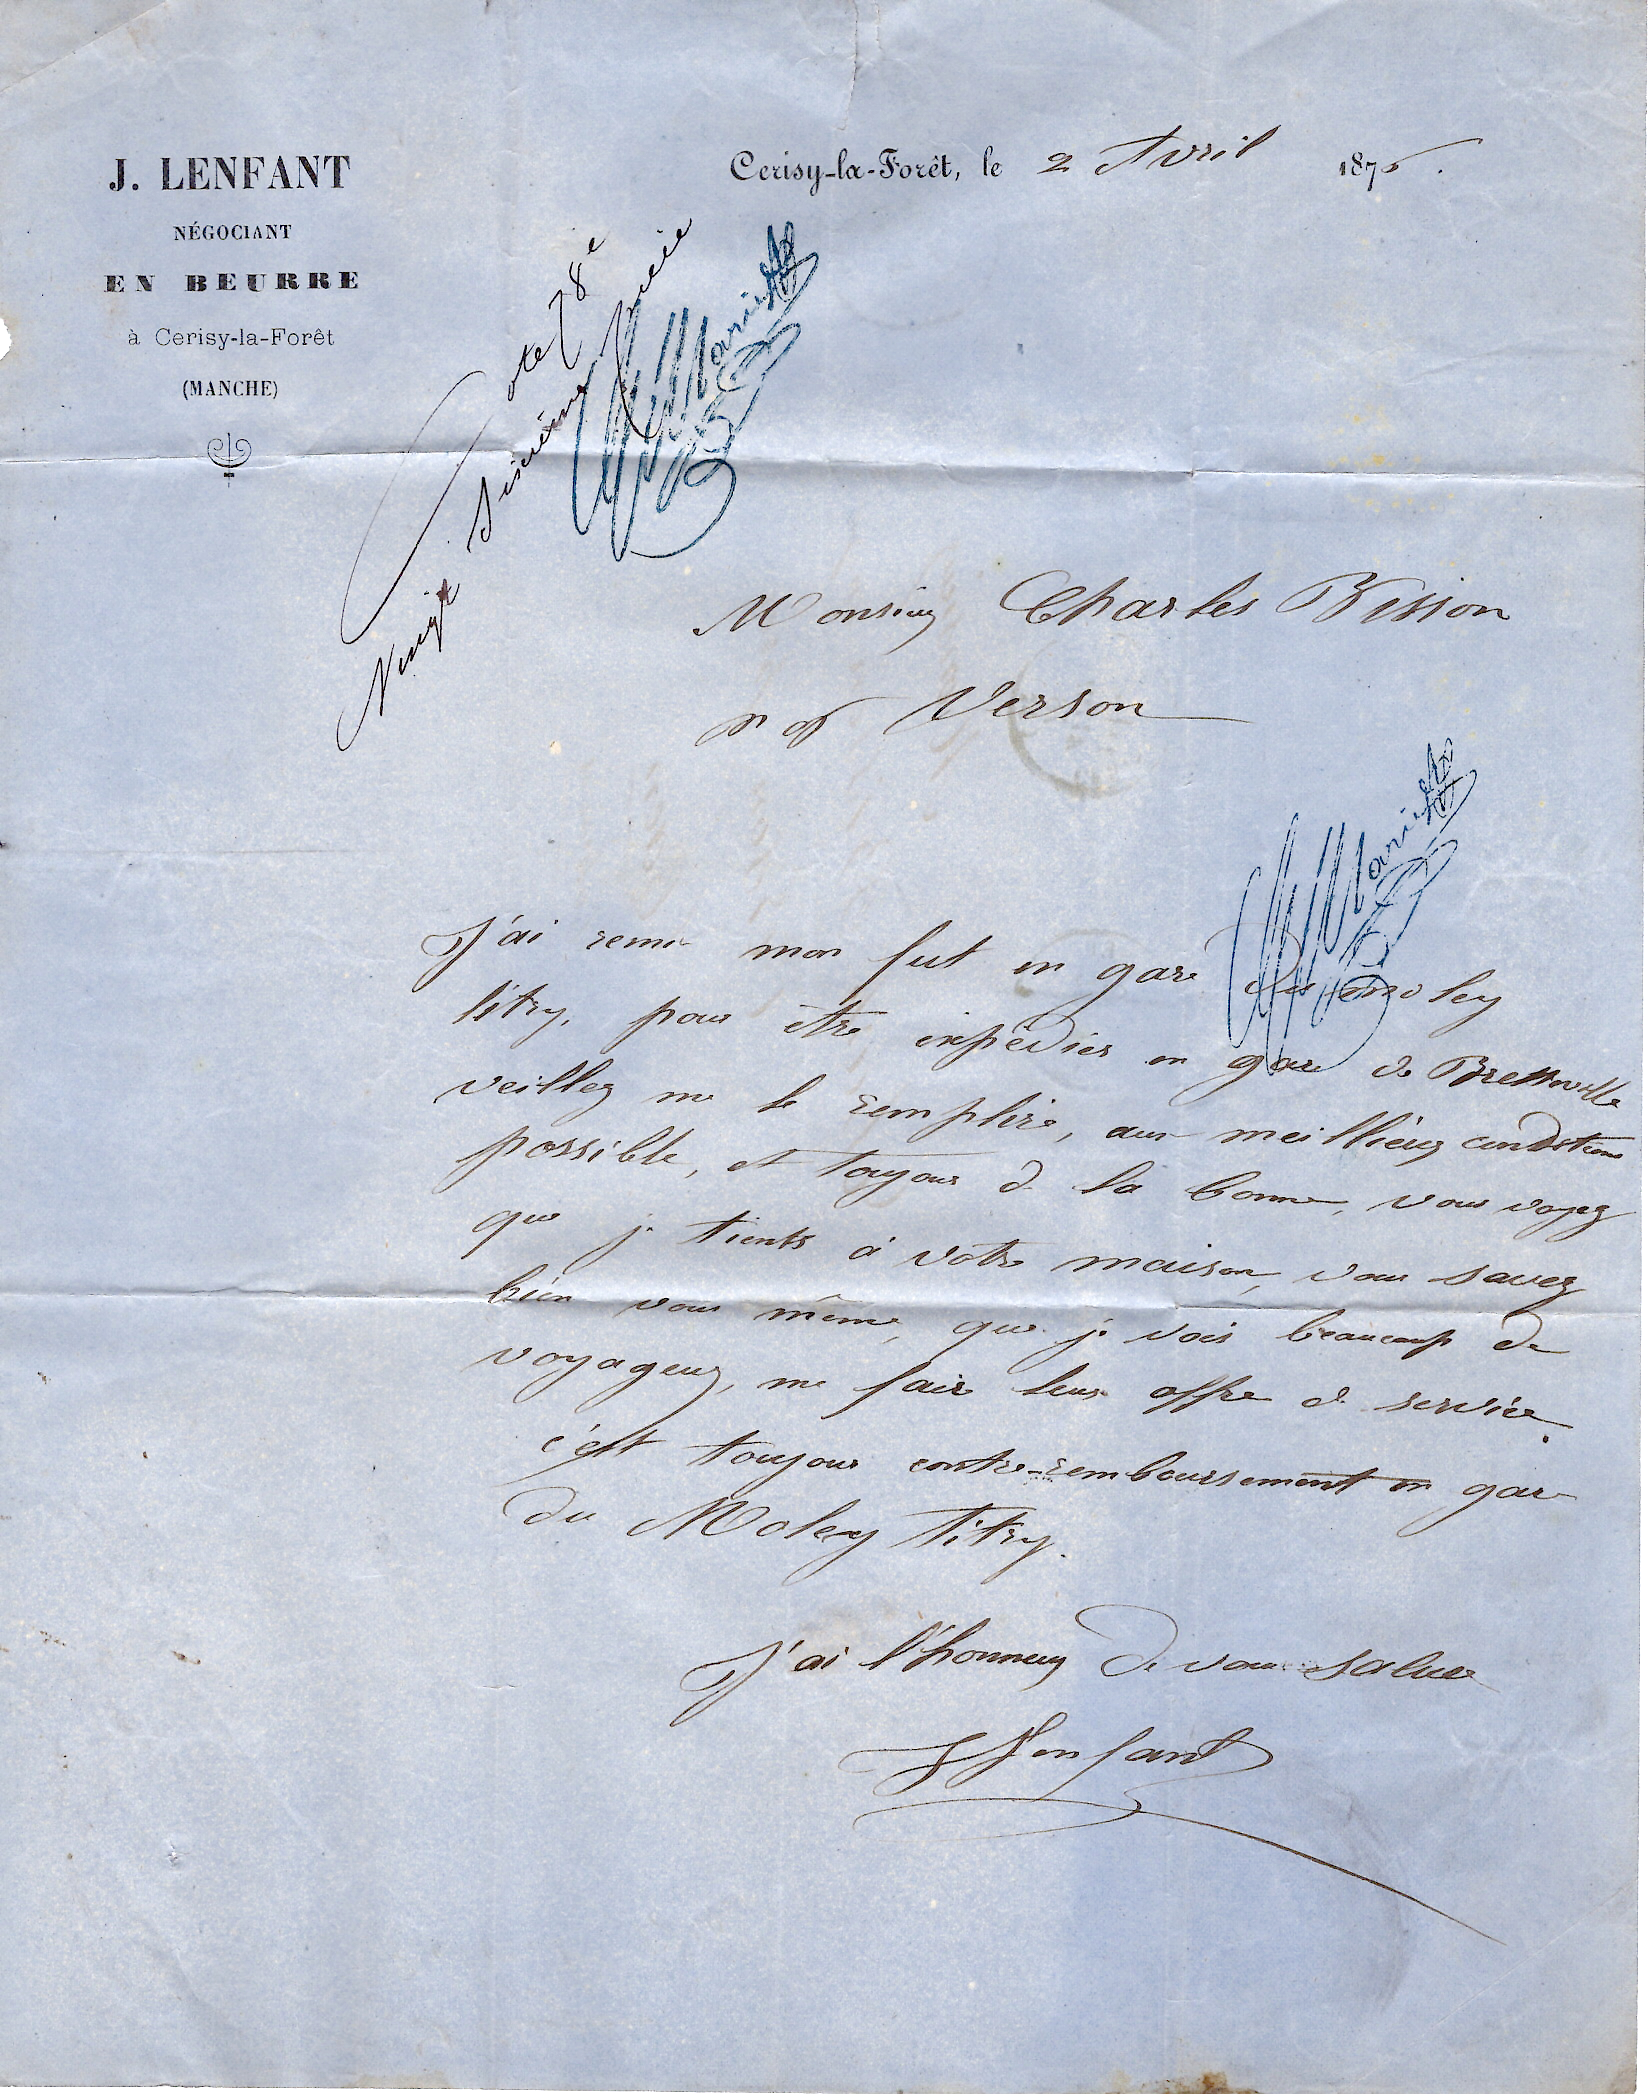 J. LENFANT
NÉGOCIANT
EN BEURRE
à Cerisy-la-Forêt
(MANCHE)
Cerisy-la-Forêt, le 2 Avril 187
Cote 78e
Vingt Sixième pièce
Monsieur Charles Bisson
Verson
J'ai remis mon fut en gare Du moley
litry, pour être expédier en gare de Bretteville
veillez me le remplire, aux meillieur condition
possible, et toujour de la bonne, vous voyez
que je tients à votre maison, vous savez
bien vous même, que je vois beaucoup de
voyageur, me faire leur offre de service.
c'est toujour contre-remboursement en gare
du Moley litry.
J'ai l'honneur De vous saluer
J Lenfant